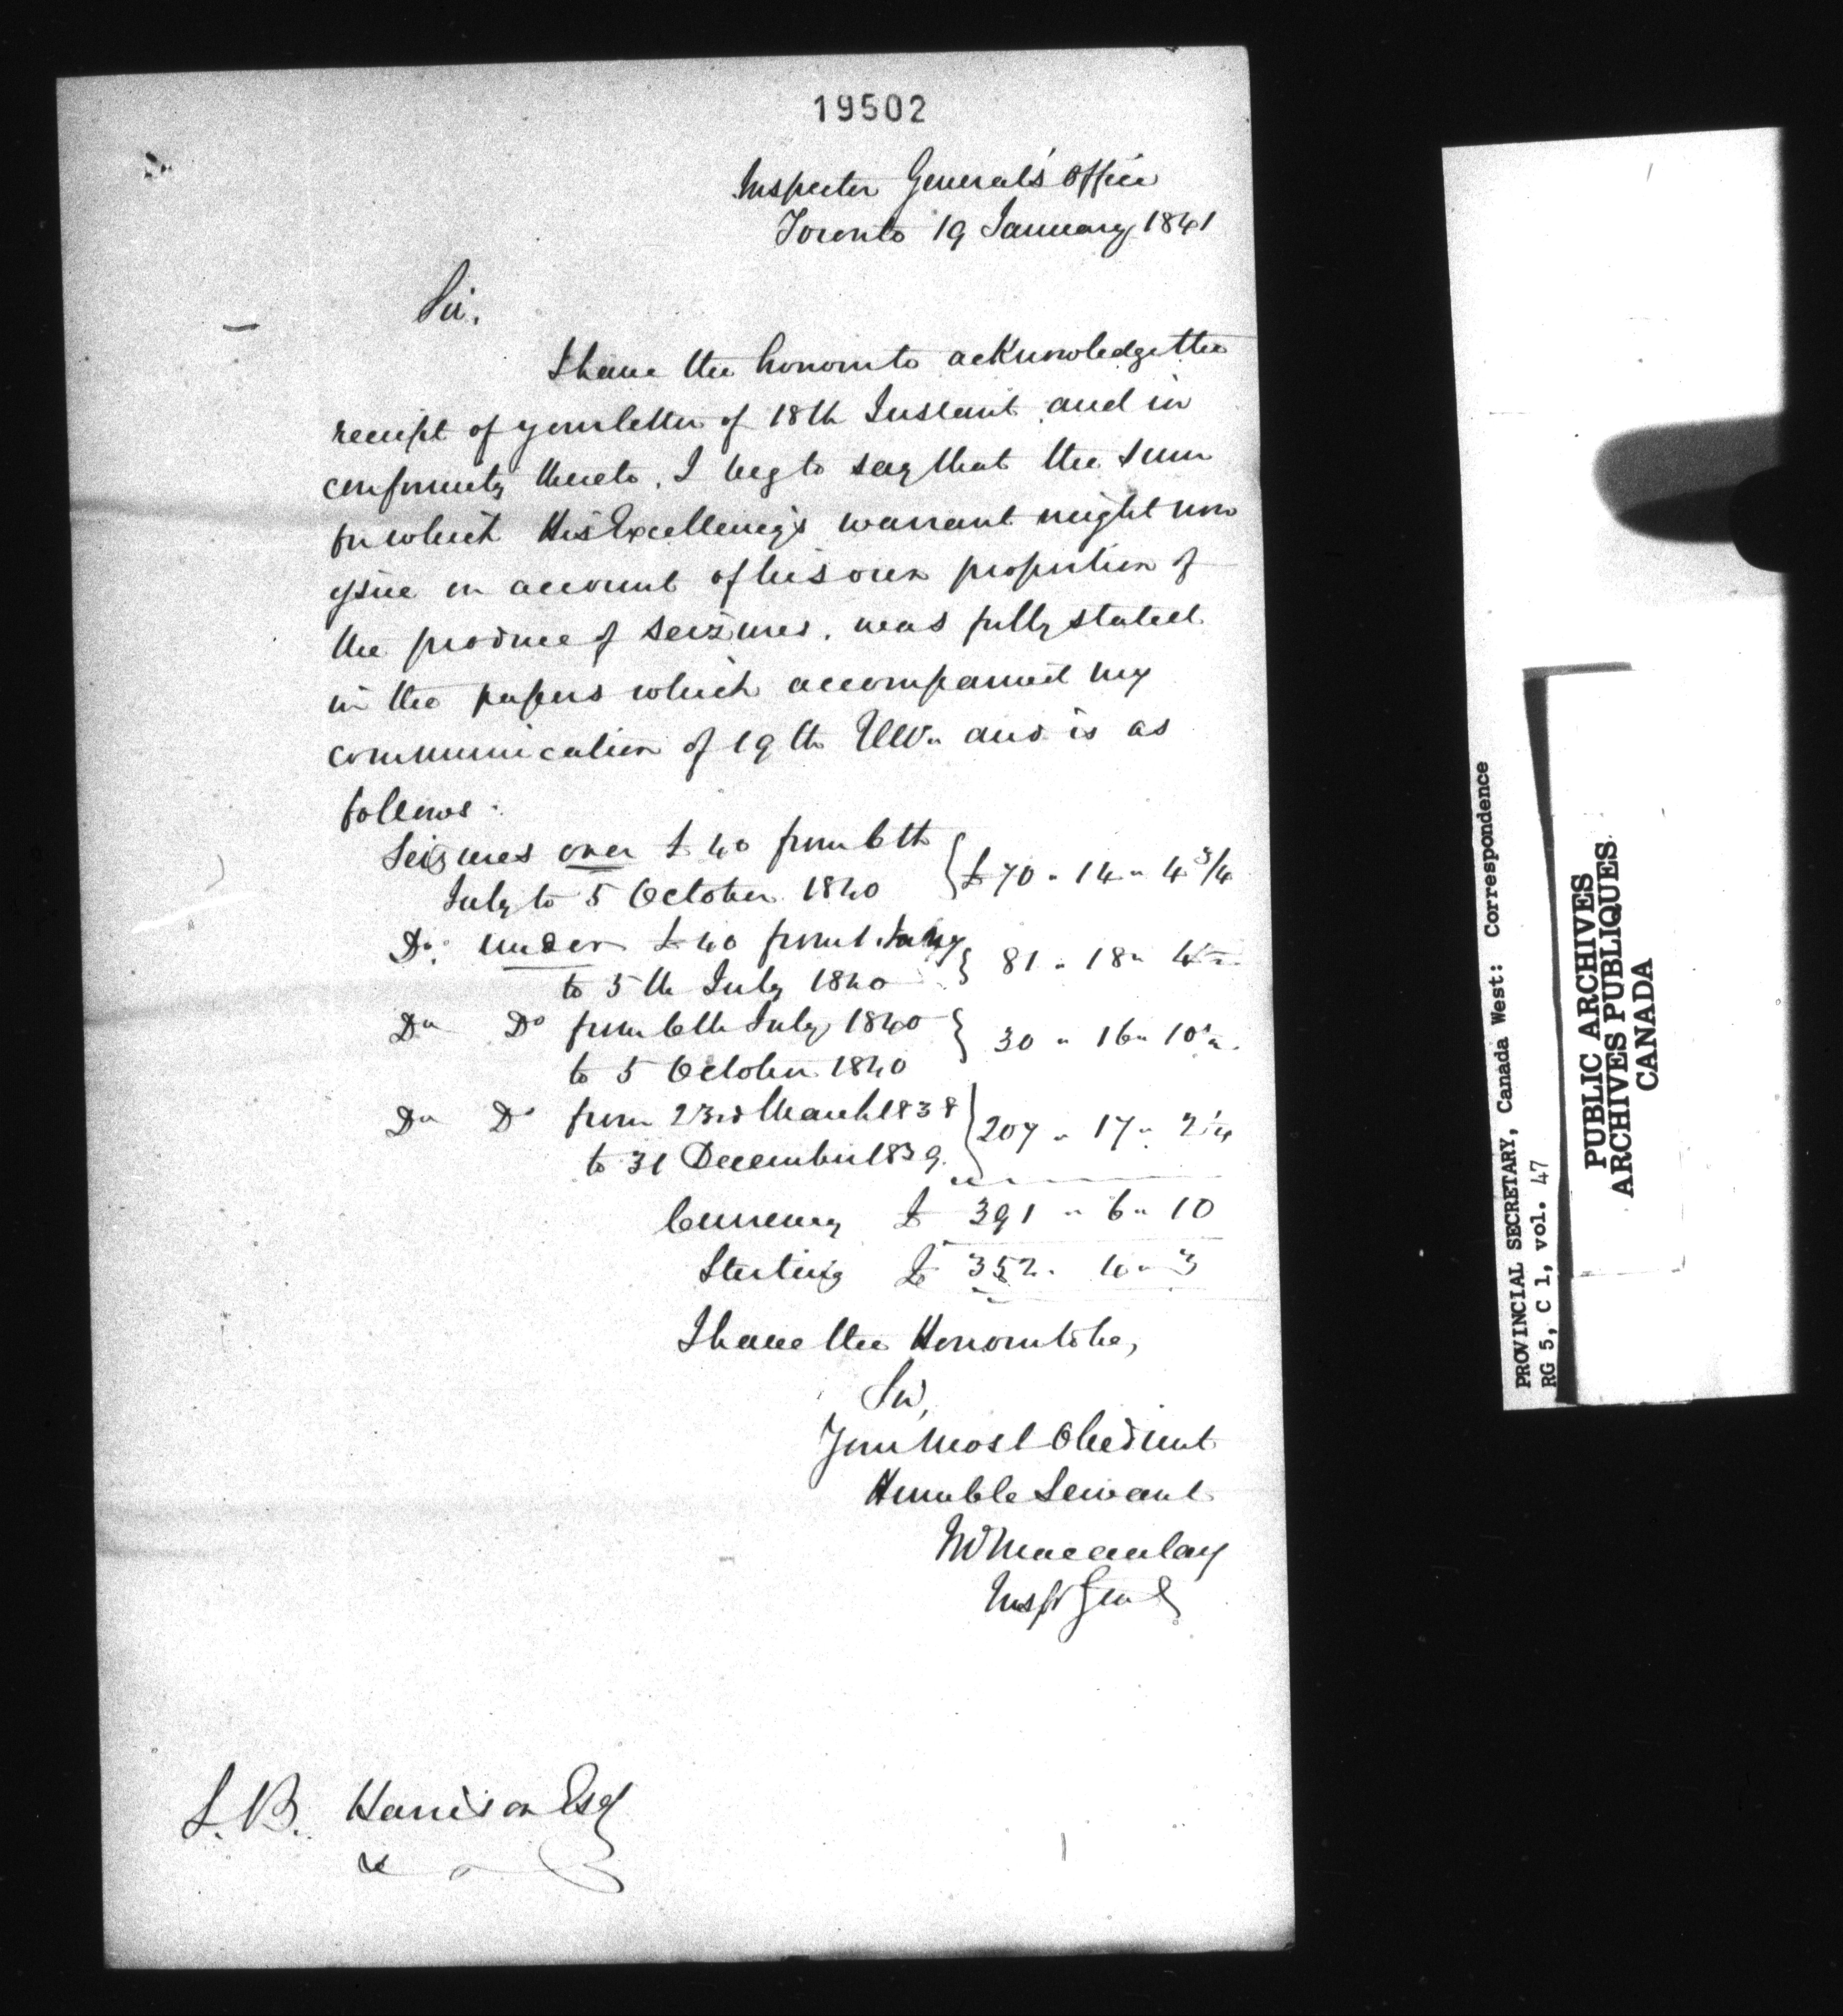 19502
Inspector General's Office
Toronto 19 January 1841
Sir,
I have the honor to acknowledge the
receipt of your letter of 18th Instant and in
conformity thereto, I beg to say that the sum
for which His Excellency's warrant might now
issue on account of his own proportion of
the produce of seizures, was fully stated
in the papers which accompanied my
communication of 19th Ulto. and is as
follows.
Seizures over £40 from 6th
July to 5 October 1840 } £70 " 14 " 4 3/4
Do. under £40 from 1 Jany
to 5th July 1840 } 81 " 18 " 4 1/2
Do Do from 6th July 1840
to 5 October 1840 } 30 " 16 " 10 1/2
Do Do from 23rd March 1838
to 31 December 1839 } 207 " 17 " 2 1/4
Currency £ 391 " 6 " 10
Sterling £ 352 " 4 " 3
I have the Honor to be,
Sir,
Your Most Obedient
Humble Servant
Macaulay
Inspr Genl
S. B. Harrison Esq
PROVINCIAL SECRETARY, Canada West: Correspondence
RG 5, C 1, vol. 47
PUBLIC ARCHIVES
ARCHIVES PUBLIQUES
CANADA